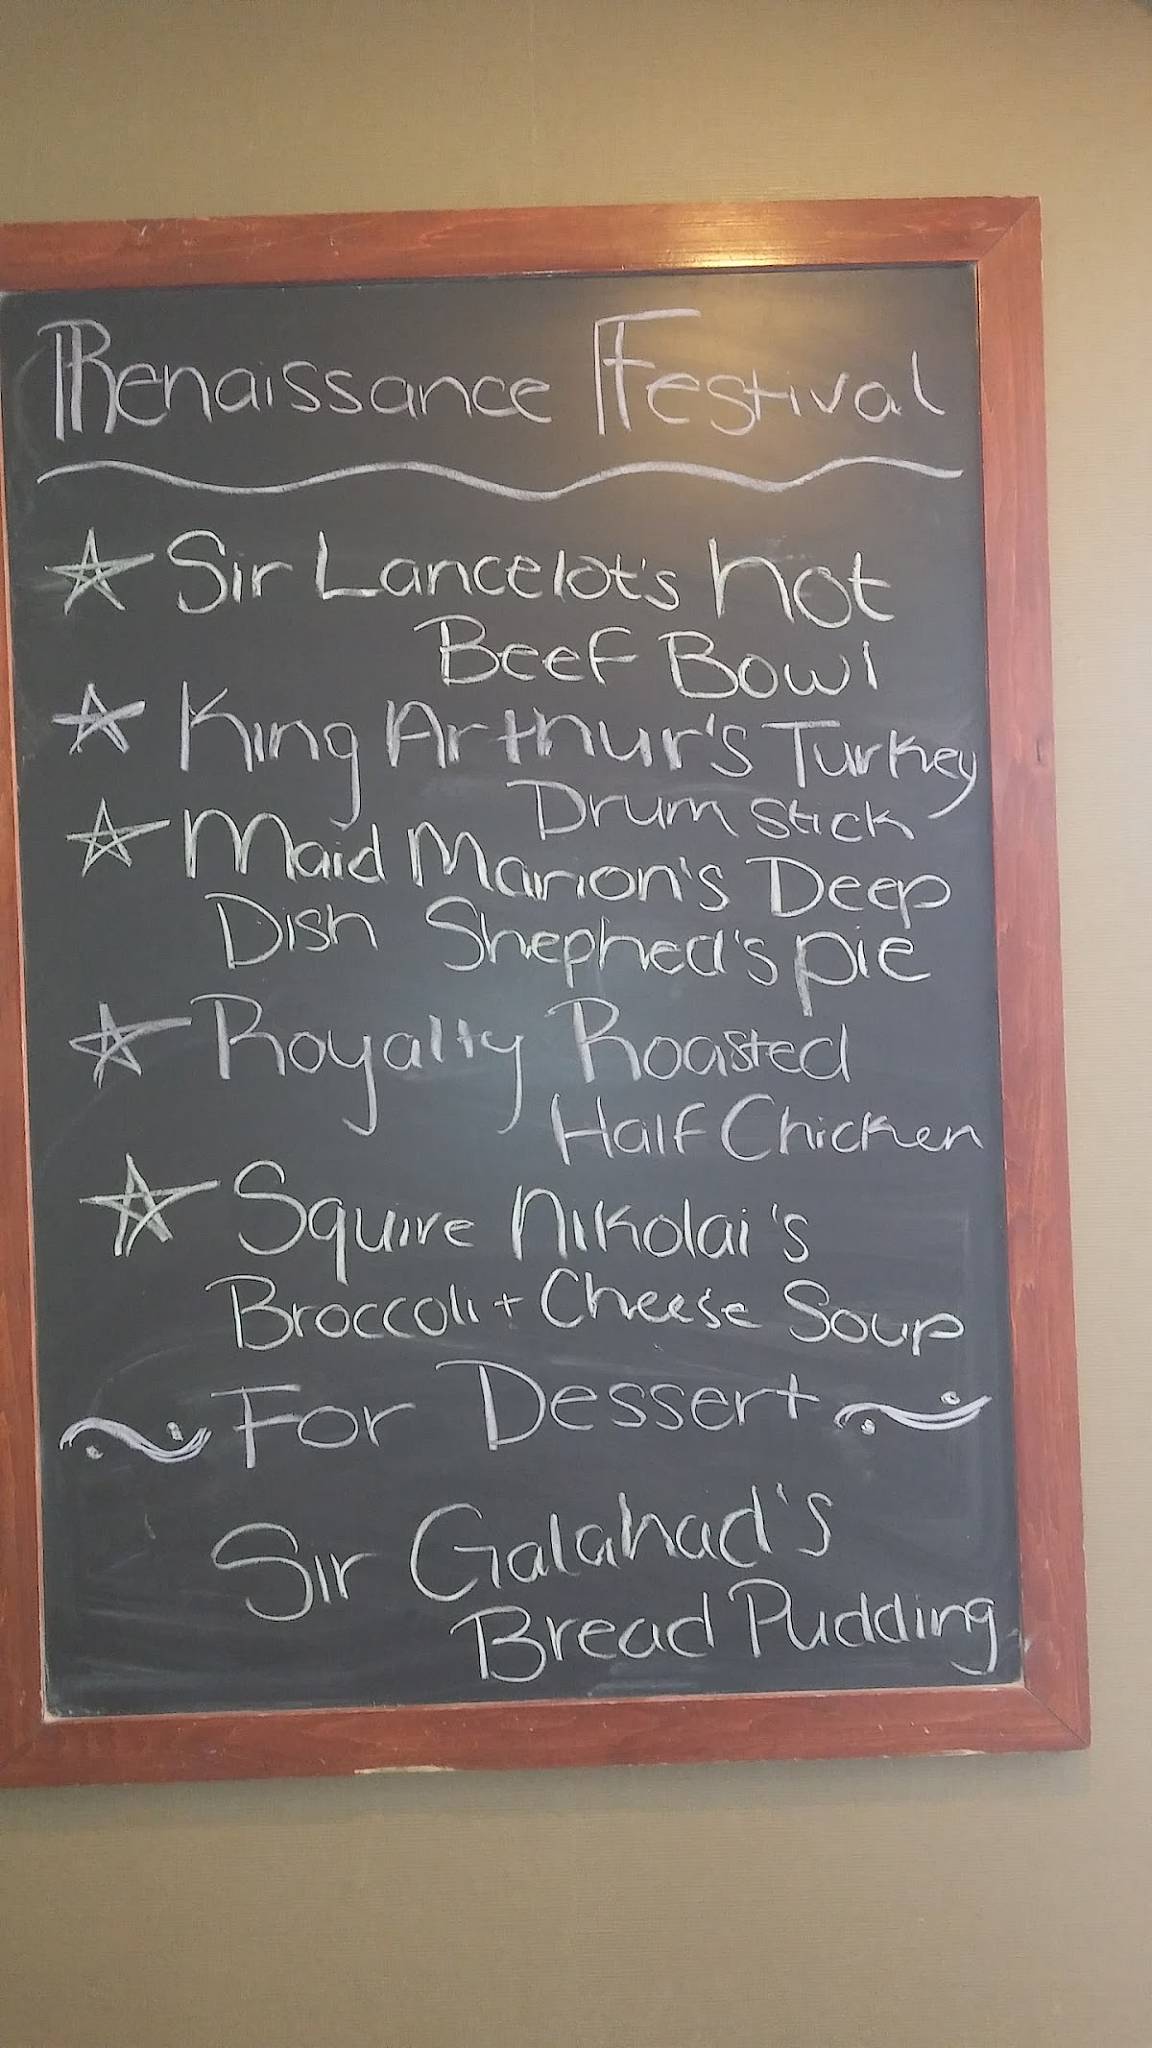 Renaissance Festival
Sir Lancelot's hot
Beef Bowl
King Arthur's Turkey
Drum Stick
Maid Marion's Deep
Dish Shephed's pie
Royalty Roasted
Half Chicken
Squire Nikolai's
Broccoli + Cheese Soup
For Dessert
Sir Galahad's
Bread Pudding